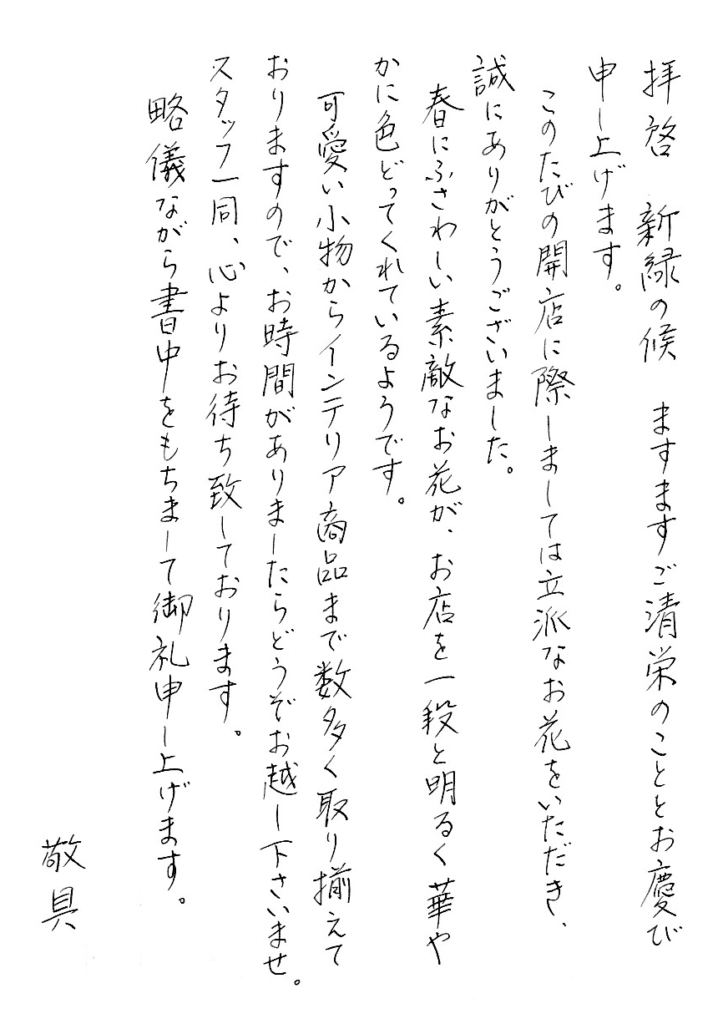 拝啓　新緑の候　ますますご清栄のこととお慶び
申し上げます。
このたびの開店に際しましては立派なお花をいただき、
誠にありがとうございました。
春にふさわしい素敵なお花が、お店を一段と明るく華や
かに色どってくれているようです。
可愛い小物からインテリア商品まで数多く取り揃えて
おりますので、お時間がありましたらどうぞお越し下さいませ。
スタッフ一同、心よりお待ち致しております。
略儀ながら書中をもちまして御礼申し上げます。
敬具